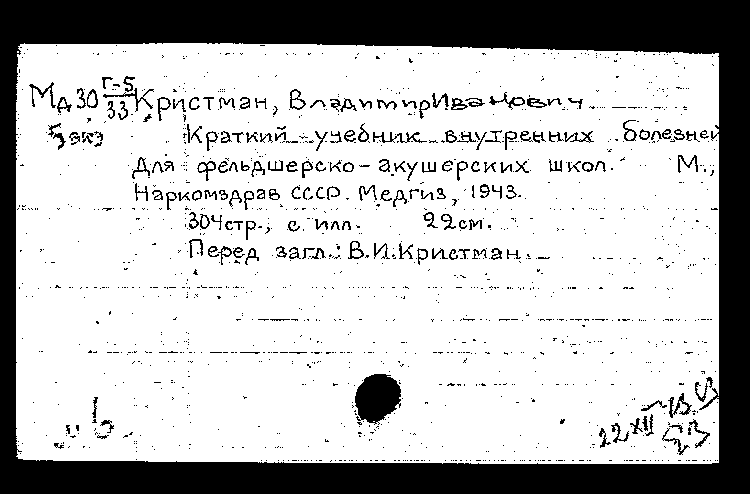 Мд30 Г-5/33 Кристман, Владимир Иванович
5 экз Краткий учебник внутренних болезней
для фельдшерско-акушерских школ. М.,
Наркомздрав СССР. Медгиз, 1943.
304стр., с илл. 22см.
Перед загл.: В.И.Кристман.
22 XII